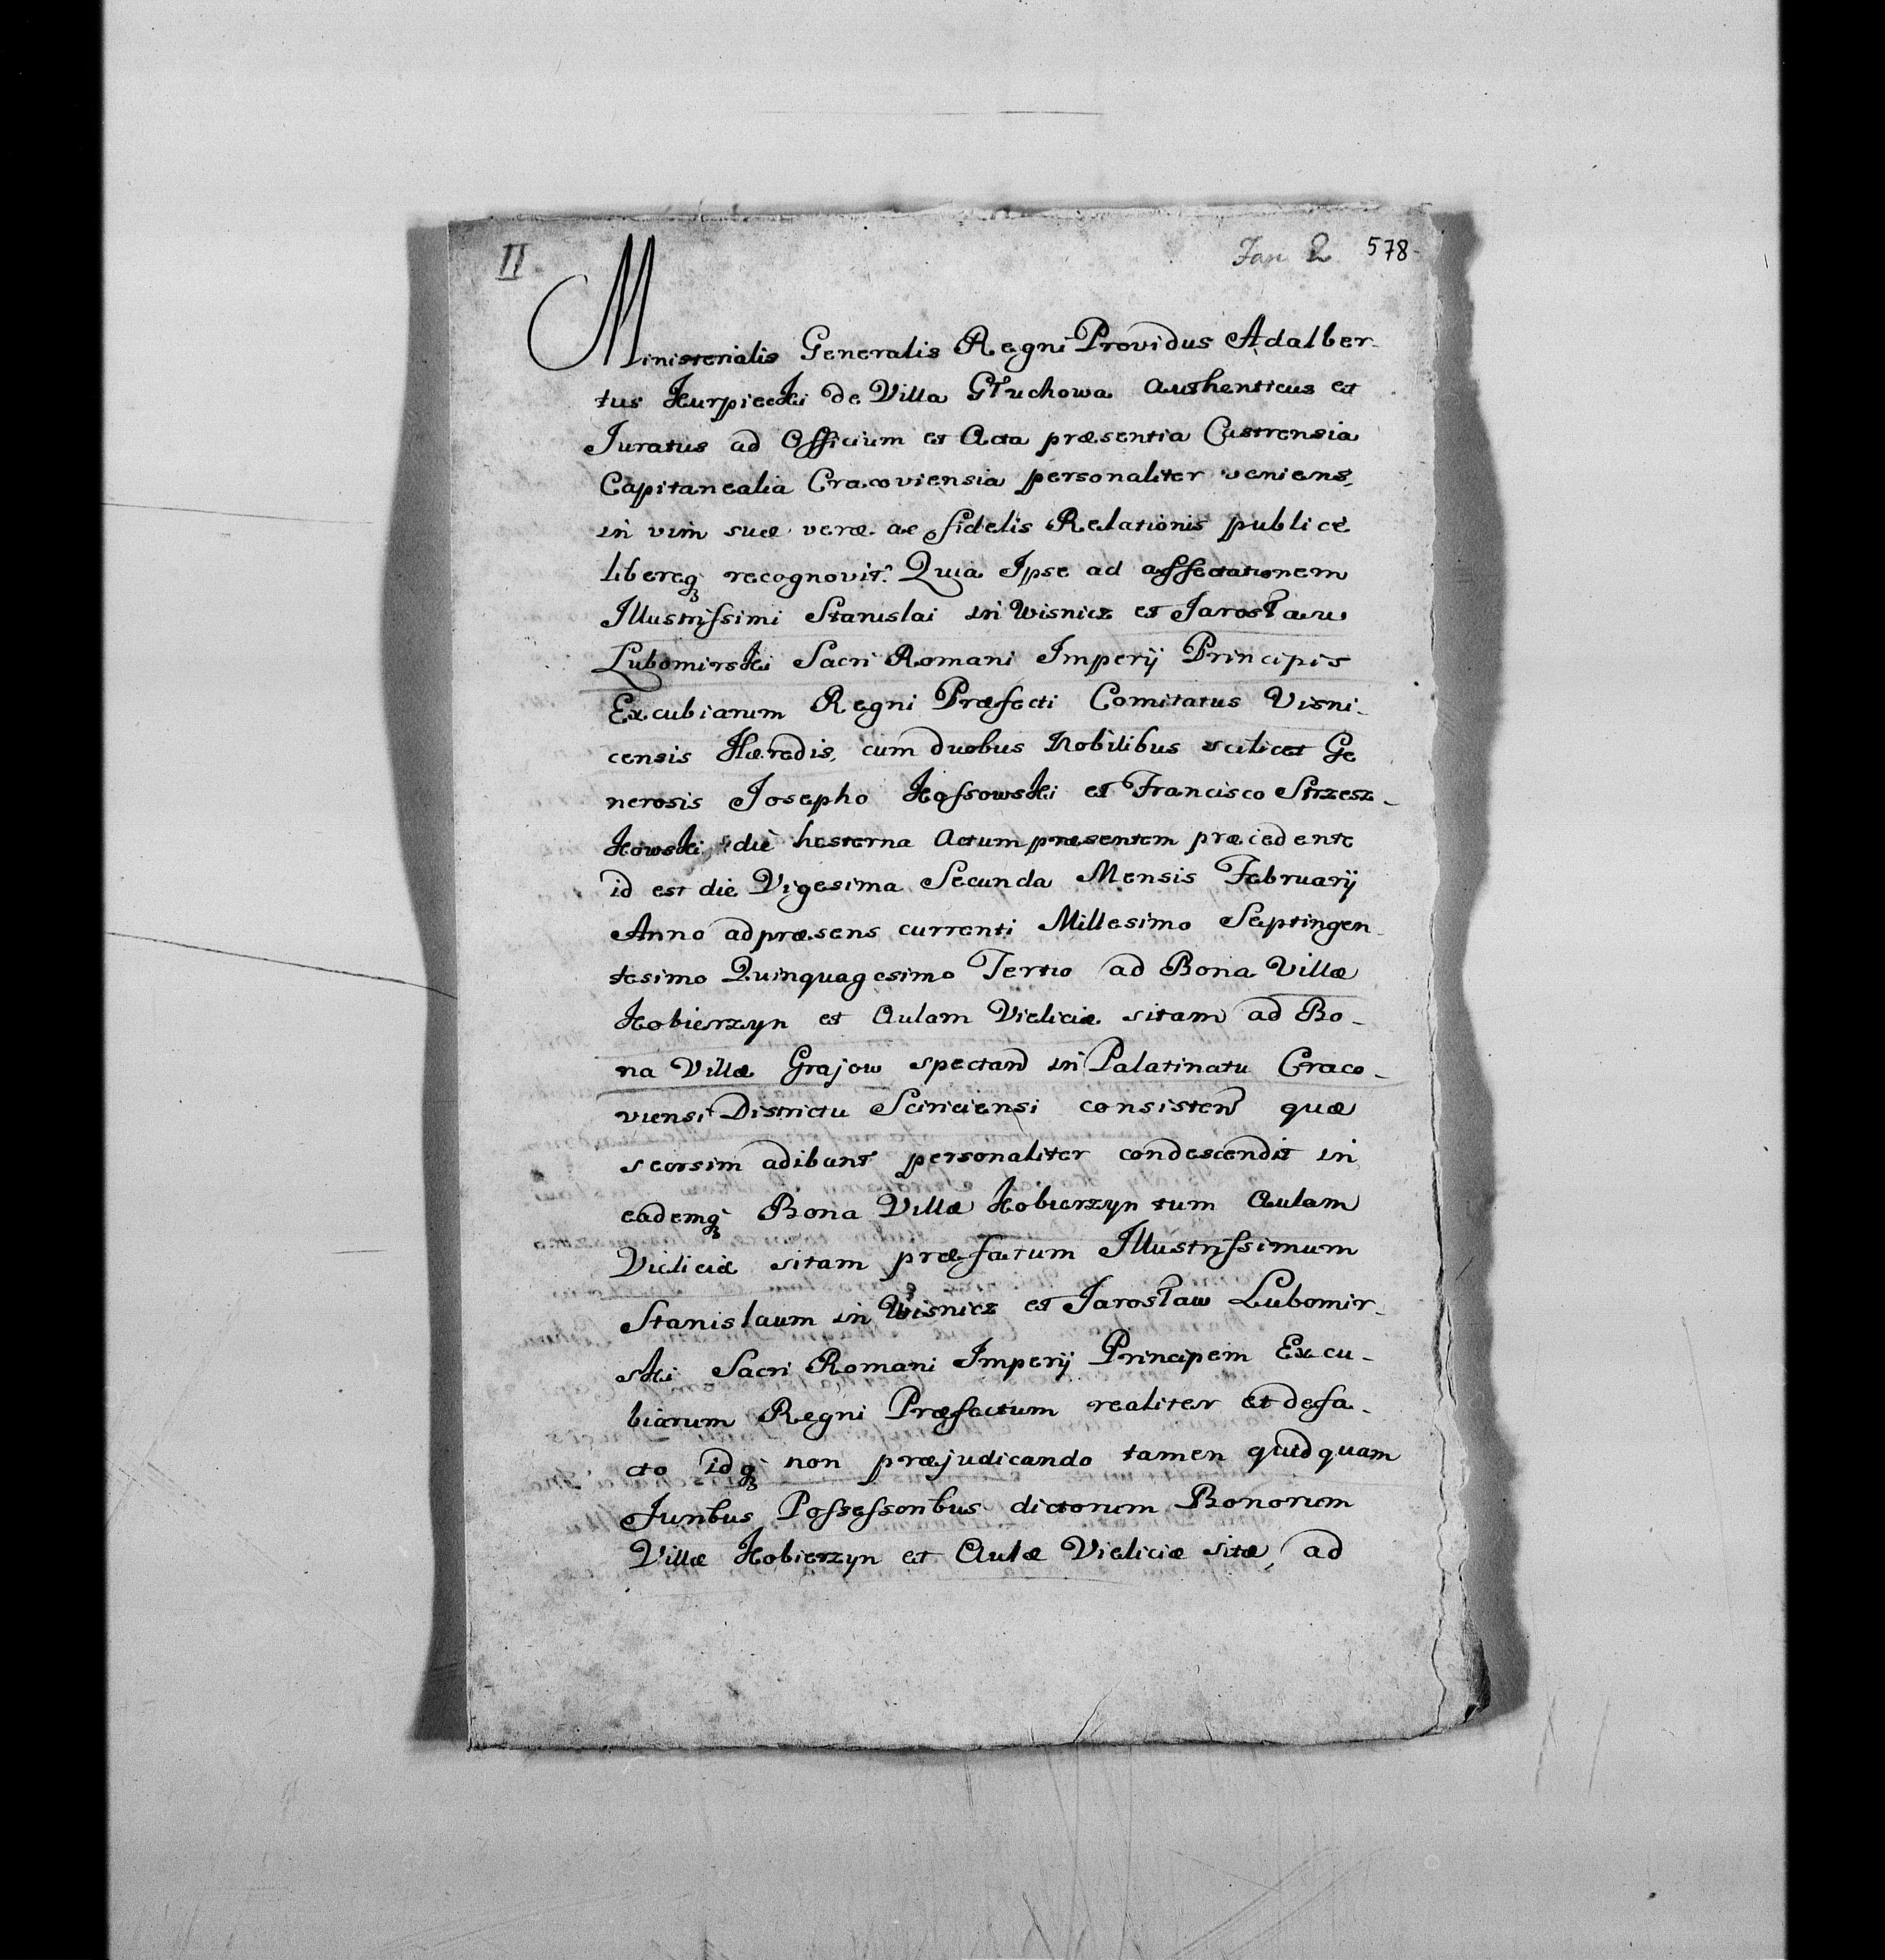 II.
Jan 2 578-
Ministerialis Generalis Regni Providus Adalber-
tus Kurpiecki de Villa Głuchowa Authenticus et
Juratus ad Officium et Acta præsentia Castrensia
Capitanealia Cracoviensia personaliter veniens,
in vim suæ veræ ac fidelis Relationis publicè
libereq́ recognovit. Quia Ipse ad affectationem
Illustrissimi Stanislai in Wisnicz et Jarosław
Lubomirski Sacri Romani Imperij Principis
Excubiarum Regni Præfecti Comitatus Visni-
censis Hæredis, cum duobus Nobilibus scilicet Ge
nerosis Josepho Kossowski et Francisco Strzesz-
kowski, die hesterna Actum præsentem præcedente
id est die Vigesima Secunda Mensis Februarij
Anno ad præsens currenti Millesimo Septingen-
tesimo Quinquagesimo Tertio ad Bona Villæ
Kobierzyn et Aulam Vieliciæ sitam ad Bo-
na Villæ Grajow spectand in Palatinatu Craco-
viensi Districtu Sciriciensi consisten quæ
seorsim adibant personaliter condescendit in
eademq́ Bona Villæ Kobierzyn tum Aulam
Vieliciæ sitam præfatum Illustrissimum
Stanislaum in Wisnicz et Jarosław Lubomir-
ski Sacri Romani Imperij Principem Excu-
biarum Regni Præfectum realiter et defa-
cto idq́ non præjudicando tamen quidquam
Juribus Possessoribus dictorum Bonorum
Villæ Kobierzyn et Aulæ Vieliciæ sitæ, ad